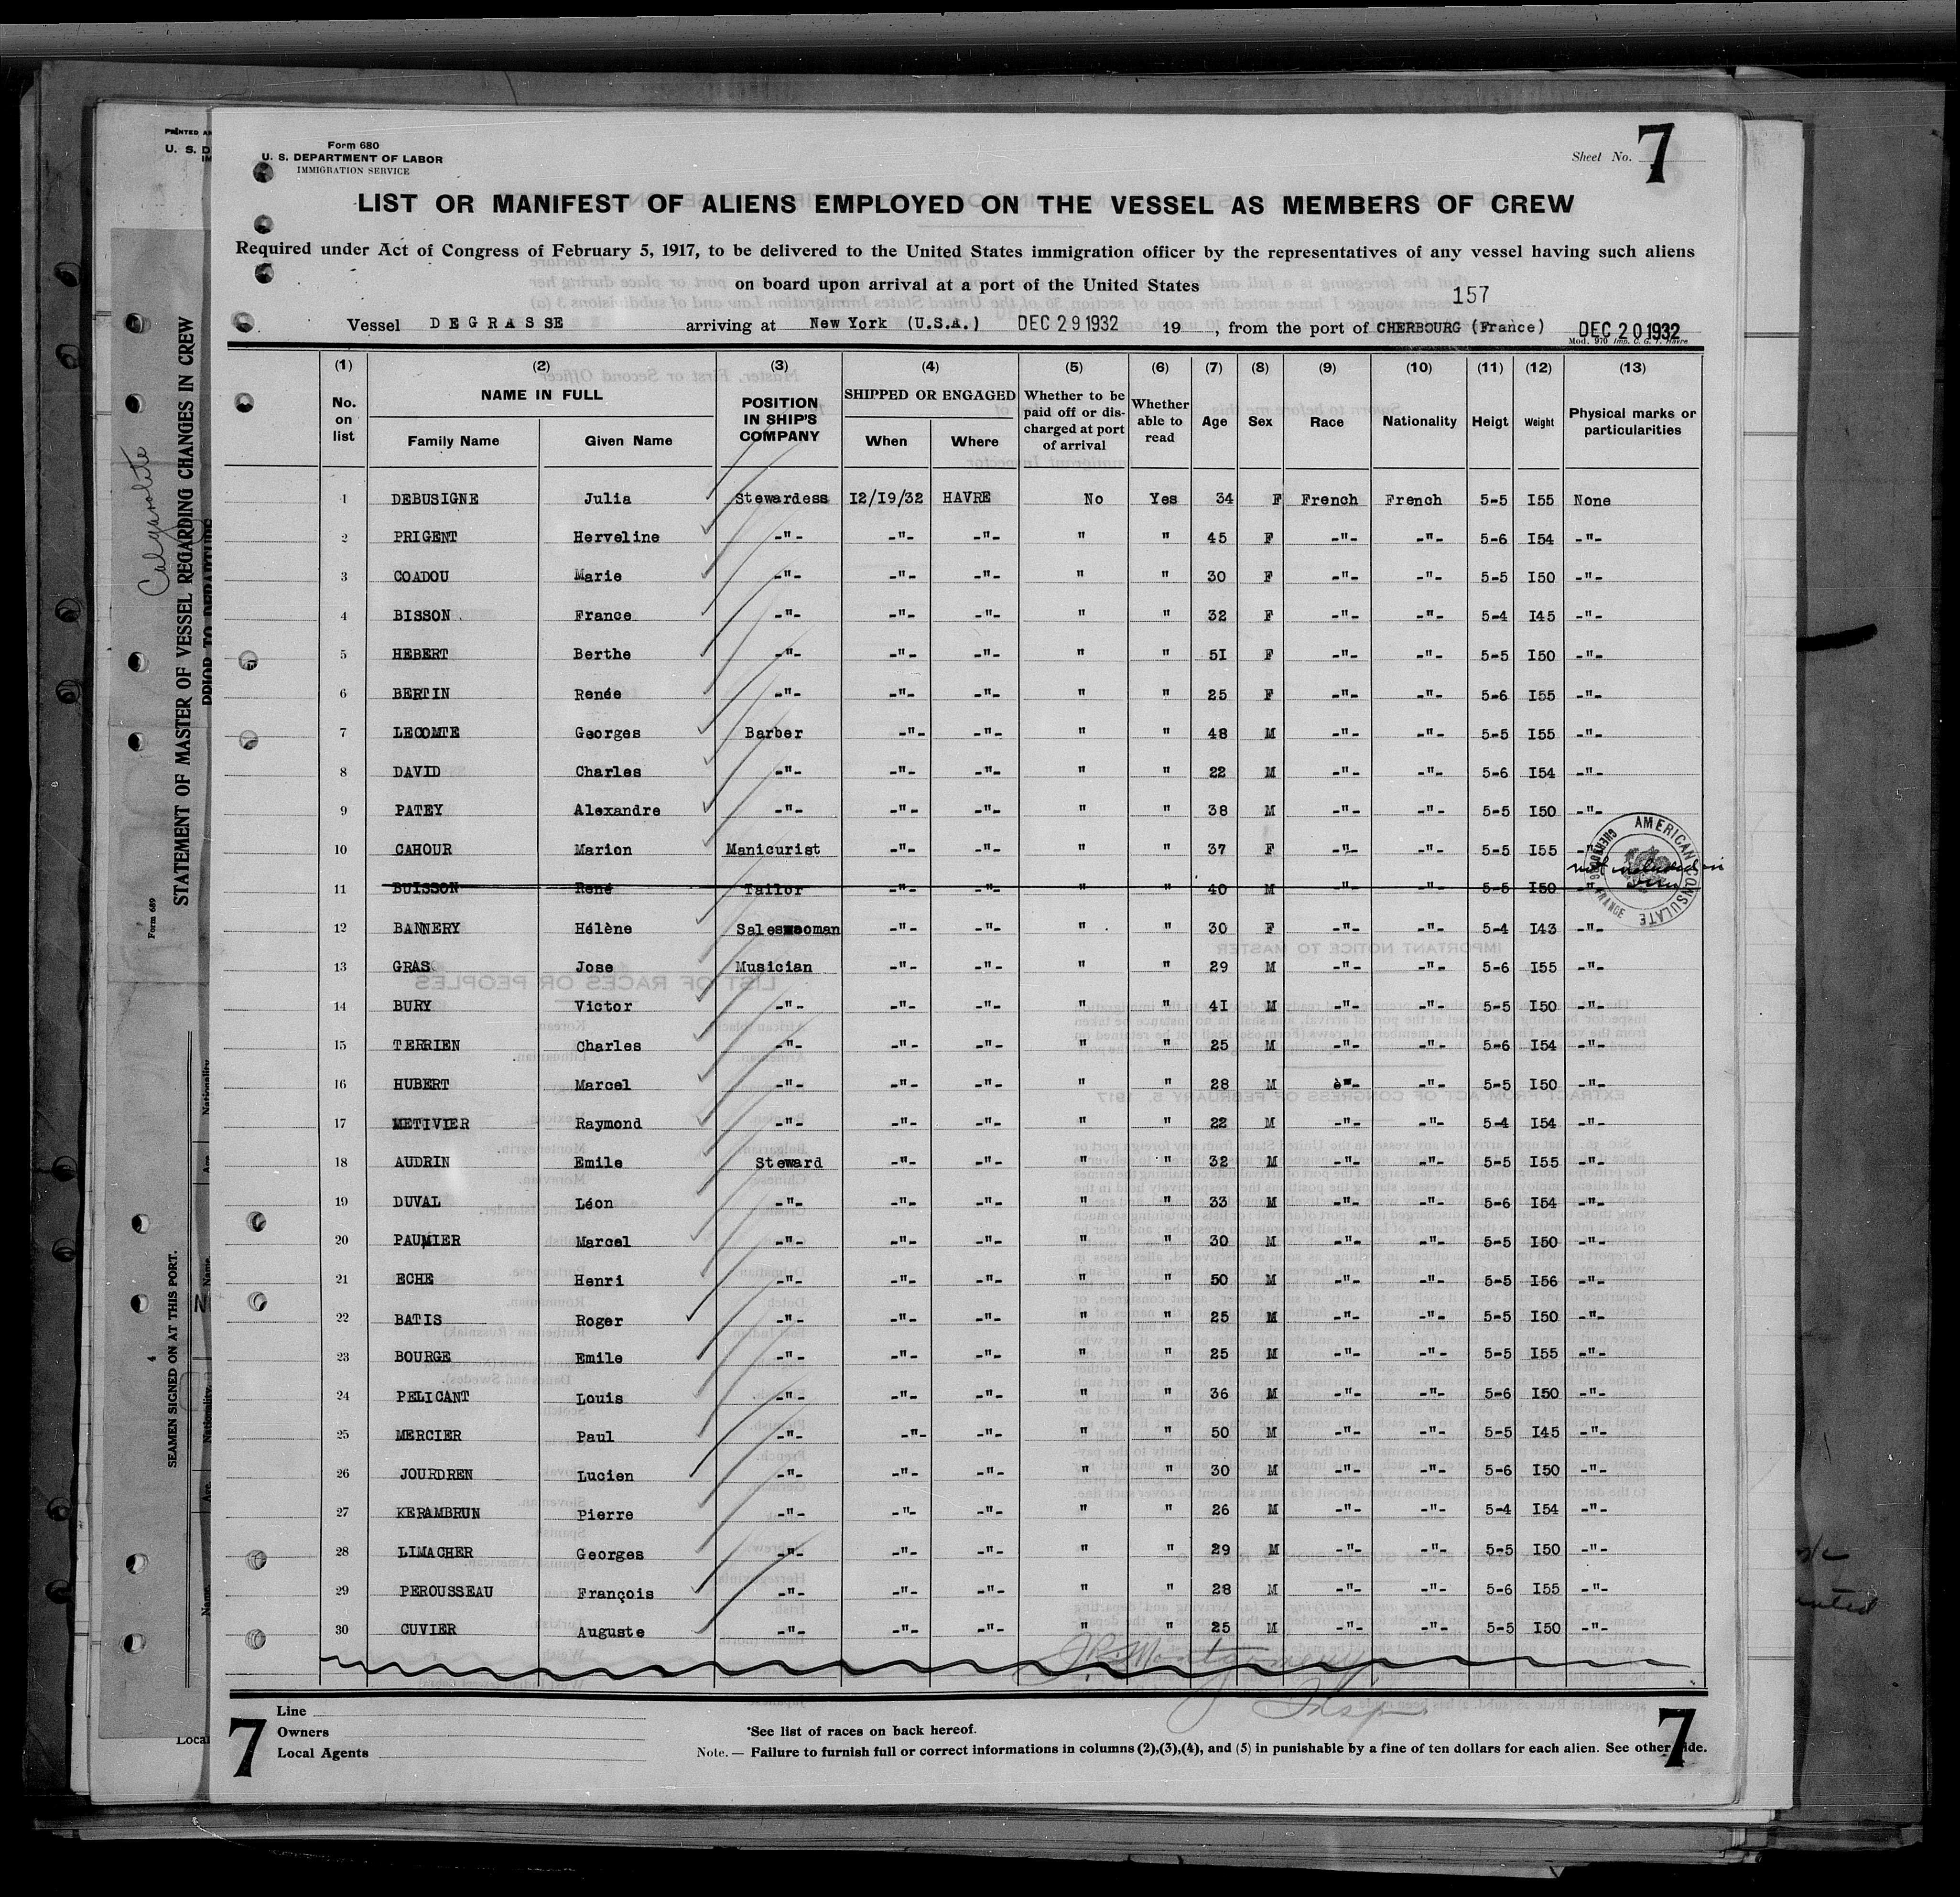 Form 680
U. S. DEPARTMENT OF LABOR
IMMIGRATION SERVICE
Sheet No. 7
LIST OR MANIFEST OF ALIENS EMPLOYED ON THE VESSEL AS MEMBERS OF CREW
Required under Act of Congress of February 5, 1917, to be delivered to the United States immigration officer by the representatives of any vessel having such aliens
on board upon arrival at a port of the United States
157
Vessel DEGRASSE arriving at New York (U.S.A.) DEC 29 1932 19 , from the port of CHERBOURG (France) DEC 20 1932
Mod. 970 Imp. C. G. T. Havre
(1) (2) (3) (4) (5) (6) (7) (8) (9) (10) (11) (12) (13)
No. on list NAME IN FULL Family Name Given Name POSITION IN SHIP'S COMPANY SHIPPED OR ENGAGED When Where Whether to be paid off or discharged at port of arrival Whether able to read Age Sex Race Nationality Heigt Weight Physical marks or particularities
1 DEBUSIGNE Julia Stewardess I2/I9/32 HAVRE No Yes 34 F French French 5-5 I55 None
2 PRIGENT Herveline -"- -"- -"- " " 45 F -"- -"- 5-6 I54 -"-
3 COADOU Marie -"- -"- -"- " " 30 F -"- -"- 5-5 I50 -"-
4 BISSON France -"- -"- -"- " " 32 F -"- -"- 5-4 I45 -"-
5 HEBERT Berthe -"- -"- -"- " " 5I F -"- -"- 5-5 I50 -"-
6 BERTIN Renée -"- -"- -"- " " 25 F -"- -"- 5-6 I55 -"-
7 LECOMTE Georges Barber -"- -"- " " 48 M -"- -"- 5-5 I55 -"-
8 DAVID Charles -"- -"- -"- " " 22 M -"- -"- 5-6 I54 -"-
9 PATEY Alexandre -"- -"- -"- " " 38 M -"- -"- 5-5 I50 -"-
10 CAHOUR Marion Manicurist -"- -"- " " 37 F -"- -"- 5-5 I55 -"-
11 BUISSON René Tailor -"- -"- " " 40 M -"- -"- 5-5 I50 -"-
not included in visa
AMERICAN CONSULATE CHERBOURG FRANCE
12 BANNERY Hélène Saleswooman -"- -"- " " 30 F -"- -"- 5-4 I43 -"-
13 GRAS Jose Musician -"- -"- " " 29 M -"- -"- 5-6 I55 -"-
14 BURY Victor -"- -"- -"- " " 4I M -"- -"- 5-5 I50 -"-
15 TERRIEN Charles -"- -"- -"- " " 25 M -"- -"- 5-6 I54 -"-
16 HUBERT Marcel -"- -"- -"- " " 28 M -"- -"- 5-5 I50 -"-
17 METIVIER Raymond -"- -"- -"- " " 22 M -"- -"- 5-4 I54 -"-
18 AUDRIN Emile Steward -"- -"- " " 32 M -"- -"- 5-5 I55 -"-
19 DUVAL Léon -"- -"- -"- " " 33 M -"- -"- 5-6 I54 -"-
20 PAUMIER Marcel -"- -"- -"- " " 30 M -"- -"- 5-5 I50 -"-
21 ECHE Henri -"- -"- -"- " " 50 M -"- -"- 5-5 I56 -"-
22 BATIS Roger -"- -"- -"- " " 25 M -"- -"- 5-5 I50 -"-
23 BOURGE Emile -"- -"- -"- " " 25 M -"- -"- 5-5 I55 -"-
24 PELICANT Louis -"- -"- -"- " " 36 M -"- -"- 5-6 I50 -"-
25 MERCIER Paul -"- -"- -"- " " 50 M -"- -"- 5-5 I45 -"-
26 JOURDREN Lucien -"- -"- -"- " " 30 M -"- -"- 5-6 I50 -"-
27 KERAMBRUN Pierre -"- -"- -"- " " 26 M -"- -"- 5-4 I54 -"-
28 LIMACHER Georges -"- -"- -"- " " 29 M -"- -"- 5-5 I50 -"-
29 PEROUSSEAU François -"- -"- -"- " " 28 M -"- -"- 5-6 I55 -"-
30 CUVIER Auguste -"- -"- -"- " " 25 M -"- -"- 5-5 I50 -"-
J R Montgomery
Insp
Line
Owners
Local Agents
*See list of races on back hereof.
Note. — Failure to furnish full or correct informations in columns (2),(3),(4), and (5) in punishable by a fine of ten dollars for each alien. See other side.
7
7
PRINTED
U. S. D
STATEMENT OF MASTER OF VESSEL REGARDING CHANGES IN CREW
PRIOR TO DEPARTURE
Form 689
SEAMEN SIGNED ON AT THIS PORT.
4
Nationality
Age
Name
Nationality
Age
Name
Local